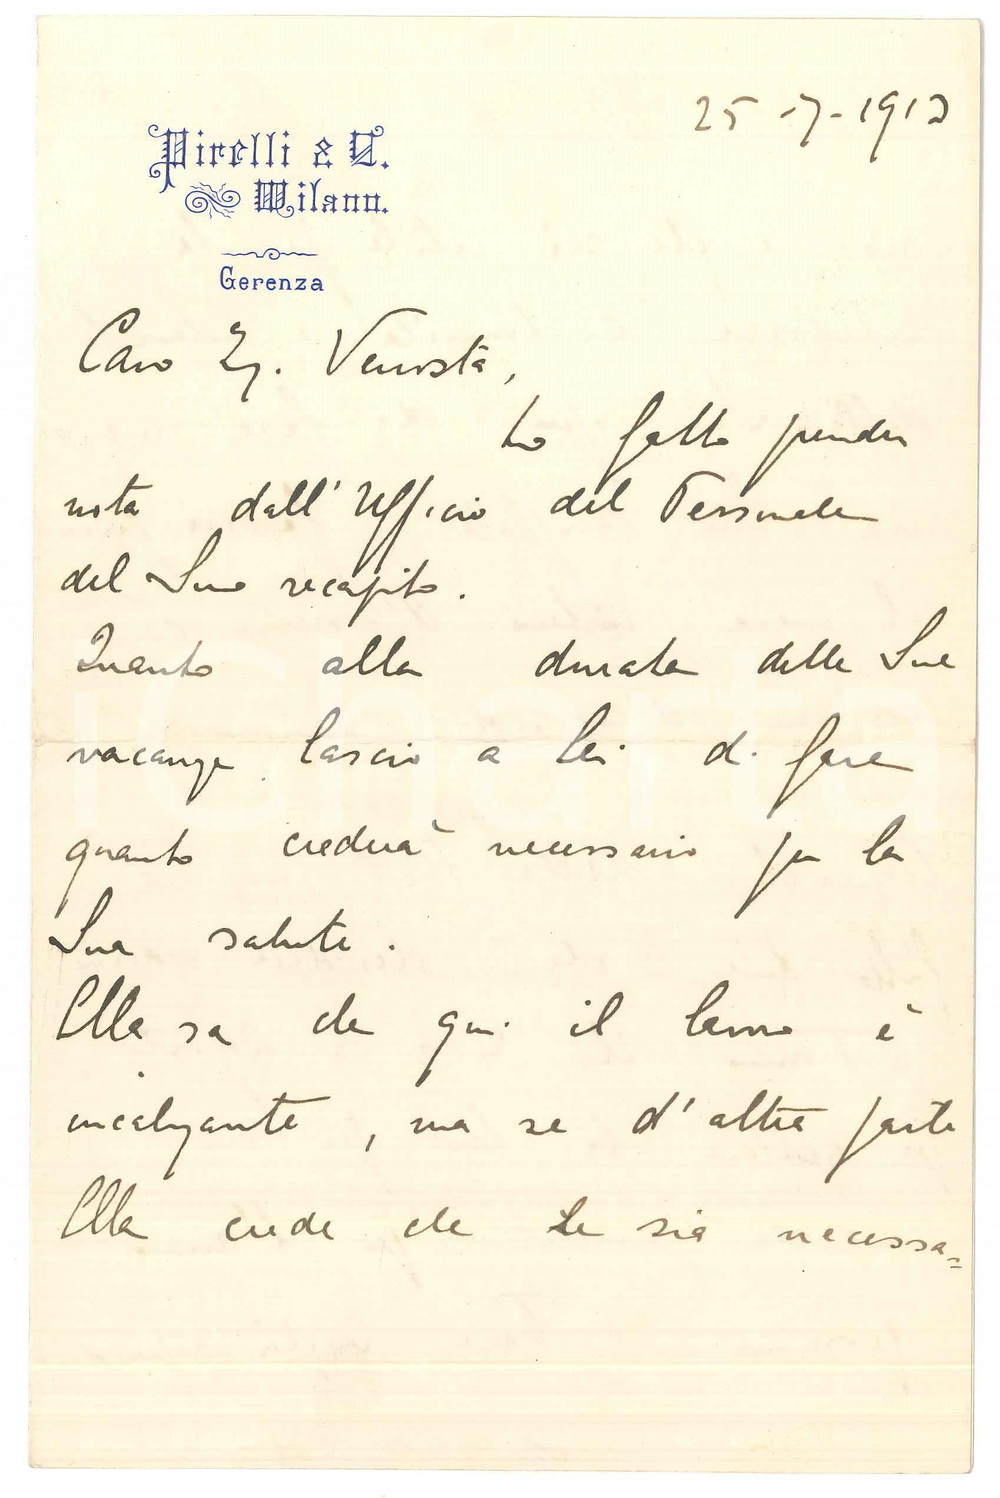 25-7-1912
Pirelli & C.
Milano.
Gerenza
Caro Ig. Venosta,
ho fatto prender
nota dall'Ufficio del Personale
del Suo recapito.
Quanto alla durata delle Sue
vacanze lascio a Lei di fare
quanto crederà necessario per la
Sua salute.
Ella sa che qui il lavoro è
incalzante, ma se d'altra parte
Ella crede che Le sia necessa=
iCharta